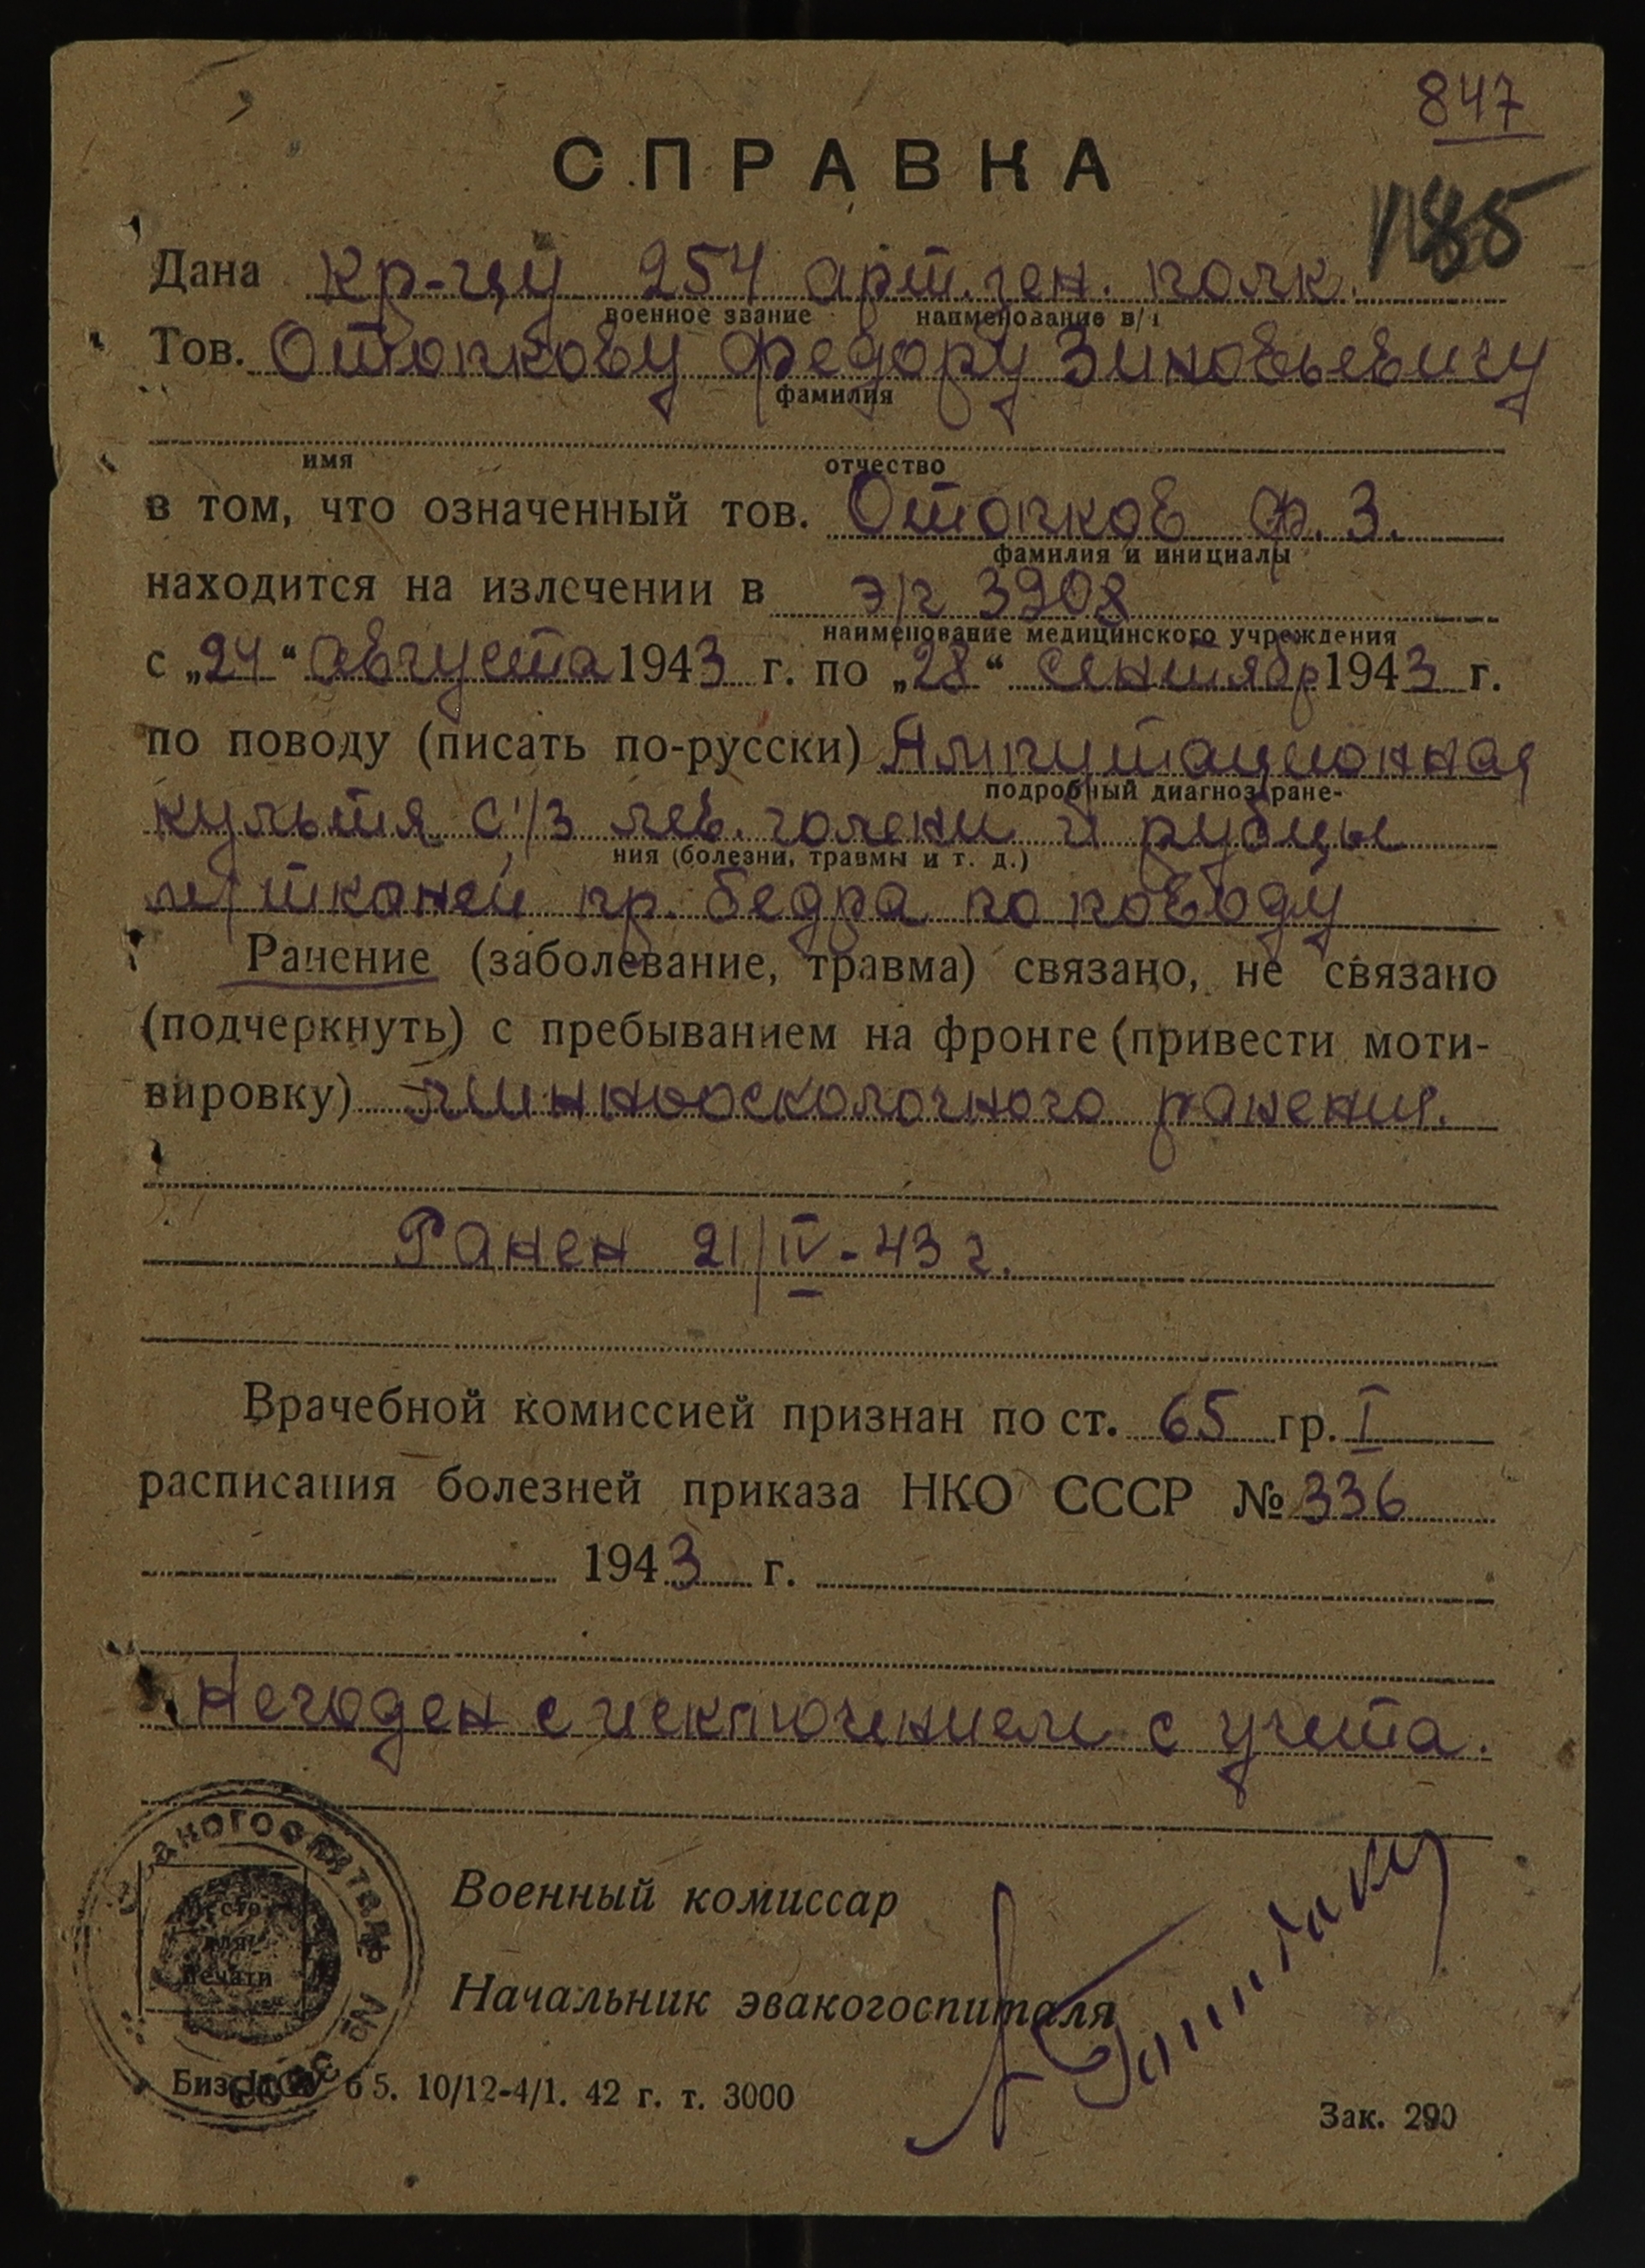 847
СПРАВКА
1185
Дана кр-цу 254 арт.ген. полк.
военное звание наименование в/ч
Тов. Отопкову Федору Зиновьевичу
фамилия
имя отчество
в том, что означенный тов. Отопков Ф. З.
фамилия и инициалы
находится на излечении в э/г 3908
наименование медицинского учреждения
с „24“ августа 1943 г. по „28“ сентябр 1943 г.
по поводу (писать по-русски) Ампутационная
подробный диагноз ране-
культя с/3 лев. голени и рубцы
ния (болезни, травмы и т. д.)
м/тканей пр. бедра по поводу
Ранение (заболевание, травма) связано, не связано
(подчеркнуть) с пребыванием на фронте (привести моти-
вировку) минноосколочного ранения.
Ранен 21/IV-43 г.
Врачебной комиссией признан по ст. 65 гр. I
расписания болезней приказа НКО СССР № 336
1943 г.
Негоден с исключением с учета.
Военный комиссар
Начальник эвакогоспиталя
Место
для
печати
65. 10/12-4/1. 42 г. т. 3000
Зак. 290